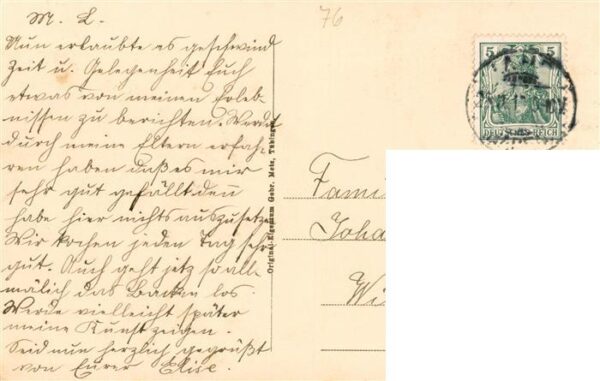 76
M. L.
Nun erlaubte es geschwind
Zeit u. Gelegenheit Euch
etwas von meinen Erleb-
nissen zu berichten. Werdet
durch meine Eltern erfah-
ren haben daß es mir
sehr gut gefällt den
habe hier nichts auszusetze
Wir kochen jeden Tag sehr
gut. Auch geht jetz so all-
mälich das Backen los.
Werde vielleicht später
meine Kunst zeigen.
Seid nun herzlich gegrüßt
von Eurer Elise.
Original-Eigentum Gebr. Metz, Tübingen
5 5
DEUTSCHES REICH
Fami
Joha
Wi